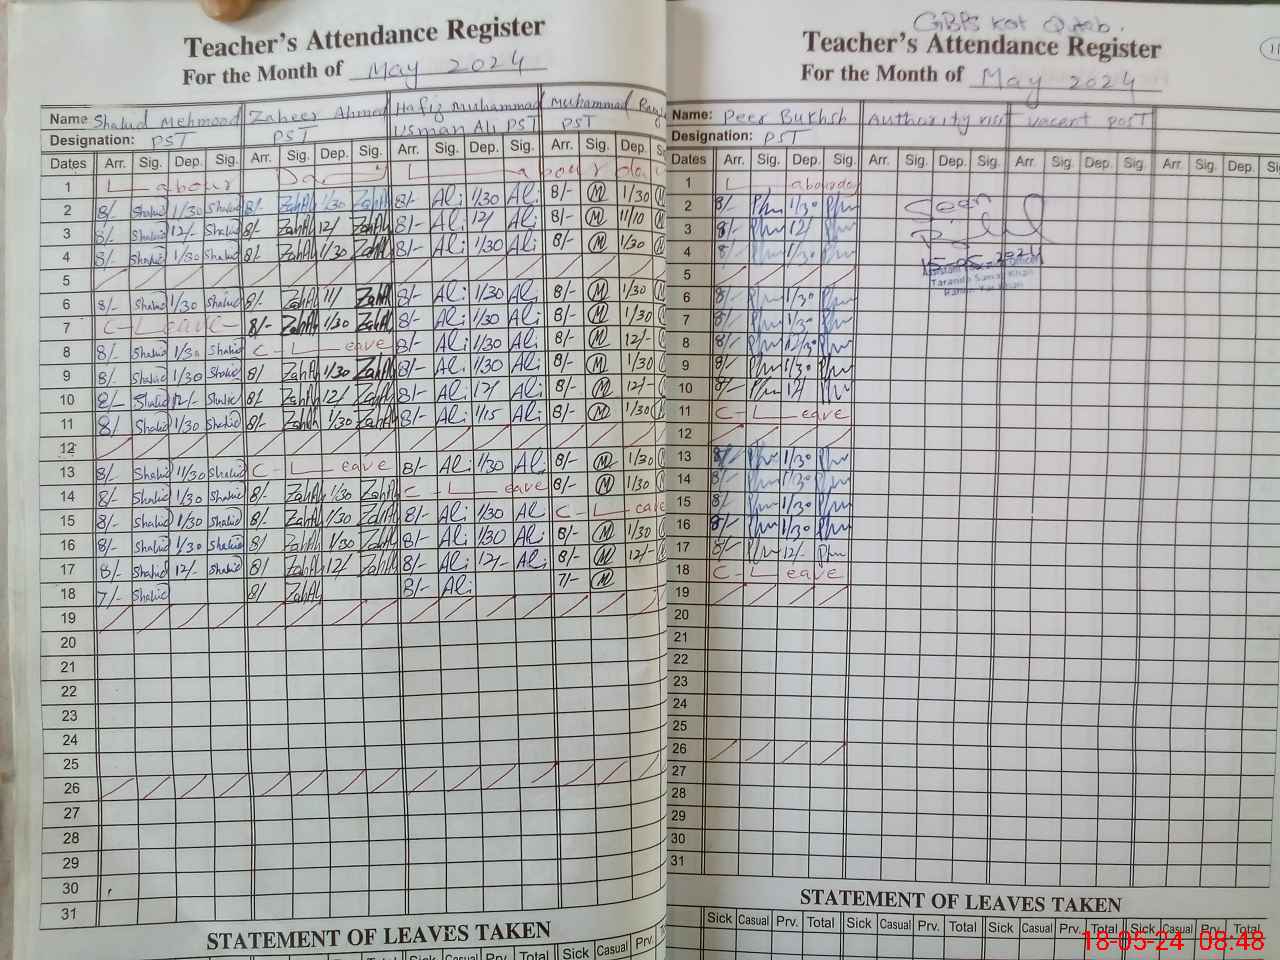 Teacher's Attendance Register
For the Month of May 2024
Name Shahid Mehmood Zaheer Ahmad Hafiz Muhammad Usman Ali Muhammad
Designation: PST PST PST PST
Dates Arr. Sig. Dep. Sig. Arr. Sig. Dep. Sig. Arr. Sig. Dep. Sig. Arr. Sig. Dep.
1 Labour Day Labour da
2 8/- Shahid 1/30 Shahid 8/- ZahAh 1/30 ZahAh 8/- Ali 1/30 Ali 8/- M 1/30
3 8/- Shahid 12/- Shahid 8/- ZahAh 12/ ZahAh 8/- Ali 12/ Ali 8/- M 11/10
4 8/- Shahid 1/30 Shahid 8/- ZahAh 1/30 ZahAh 8/- Ali 1/30 Ali 8/- M 1/30
5
6 8/- Shahid 1/30 Shahid 8/- ZahAh 11/ ZahAh 8/- Ali 1/30 Ali 8/- M 1/30
7 C-Leave- 8/- ZahAh 1/30 ZahAh 8/- Ali 1/30 Ali 8/- M 1/30
8 8/- Shahid 1/30 Shahid C-Leave 8/- Ali 1/30 Ali 8/- M 12/-
9 8/- Shahid 1/30 Shahid 8/ ZahAh 1/30 ZahAh 8/- Ali 1/30 Ali 8/- M 1/30
10 8/- Shahid 12/- Shahid 8/ ZahAh 12/ ZahAh 8/- Ali 12/ Ali 8/- M 12/-
11 8/ Shahid 1/30 Shahid 8/- ZahAh 1/30 ZahAh 8/- Ali 1/15 Ali 8/- M 1/30
12
13 8/- Shahid 11/30 Shahid C-Leave 8/- Ali 1/30 Ali 8/- M 1/30
14 8/- Shahid 1/30 Shahid 8/- ZahAh 1/30 ZahAh C-Leave 8/- M 1/30
15 8/- Shahid 1/30 Shahid 8/- ZahAh 1/30 ZahAh 8/- Ali 1/30 Ali C-Leave
16 8/- Shahid 1/30 Shahid 8/ ZahAh 1/30 ZahAh 8/- Ali 1/30 Ali 8/- M 1/30
17 8/- Shahid 12/- Shahid 8/ ZahAh 12/ ZahAh 8/- Ali 12/- Ali 8/- M 12/-
18 7/- Shahid 8/ ZahAh 8/- Ali 7/- M
19
20
21
22
23
24
25
26
27
28
29
30
31
STATEMENT OF LEAVES TAKEN
Sick Casual Prv. Total Sick Casual Prv.
GBPS Kot Qutab.
Teacher's Attendance Register
For the Month of May 2024
Name: Peer Bukhsh Authority visit vacent post
Designation: PST
Dates Arr. Sig. Dep. Sig. Arr. Sig. Dep. Sig. Arr. Sig. Dep. Sig. Arr. Sig. Dep.
1 Labourday
2 8/- 1/30 Seen
3 8/- 12/
4 8/- 1/30 15-05-2024
5
6 8/- 1/30
7 8/- 1/30
8 8/- 12/30
9 8/- 1/30
10 8/- 12/
11 C-Leave
12
13 8/- 1/30
14 8/- 1/30
15 8/- 1/30
16 8/- 1/30
17 8/- 12/-
18 C-Leave
19
20
21
22
23
24
25
26
27
28
29
30
31
STATEMENT OF LEAVES TAKEN
Sick Casual Prv. Total Sick Casual Prv. Total Sick Casual Prv. Total Sick Casual Prv. Total
18-05-24 08:48